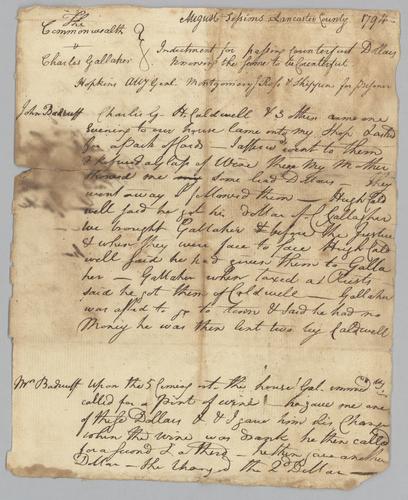 August Sessions Lancaster County 1794
The
Commonwealth
v
Charles Gallaher
Indictment for passing Counterfeit Dollars
knowing the same to be Counterfeit
Hopkins Atty Genl Montgomery Ross & Shippen for Prisoner
John Charles G H. Caldwell & 3 others came one
Evening to our house came into my Shop & asked
for a pack of Cards — I afterwd went to them
& found a glass of Wine there My Mother
showed me some bad Dollars They
went away I followed them — Hugh Cald
well said he got his dollar of C Gallagher
We brought Gallaher before the Justice
& when they were face to face Hugh Cald
well said he had given them to Galla
her — Gallaher when taxed at
said he got them of Caldwell — Gallaher
was afraid to go to town & said he had no
Money he was then lent two by Caldwell
Mrs Upon the 5 coming into the house Gal immedly
called for a Pint of wine — he gave me one
of these Dollars & I gave him his Change
when the wine was drank he then called
for a second & a third — he then gave another
Dollar — She changed the 2d Dollar —